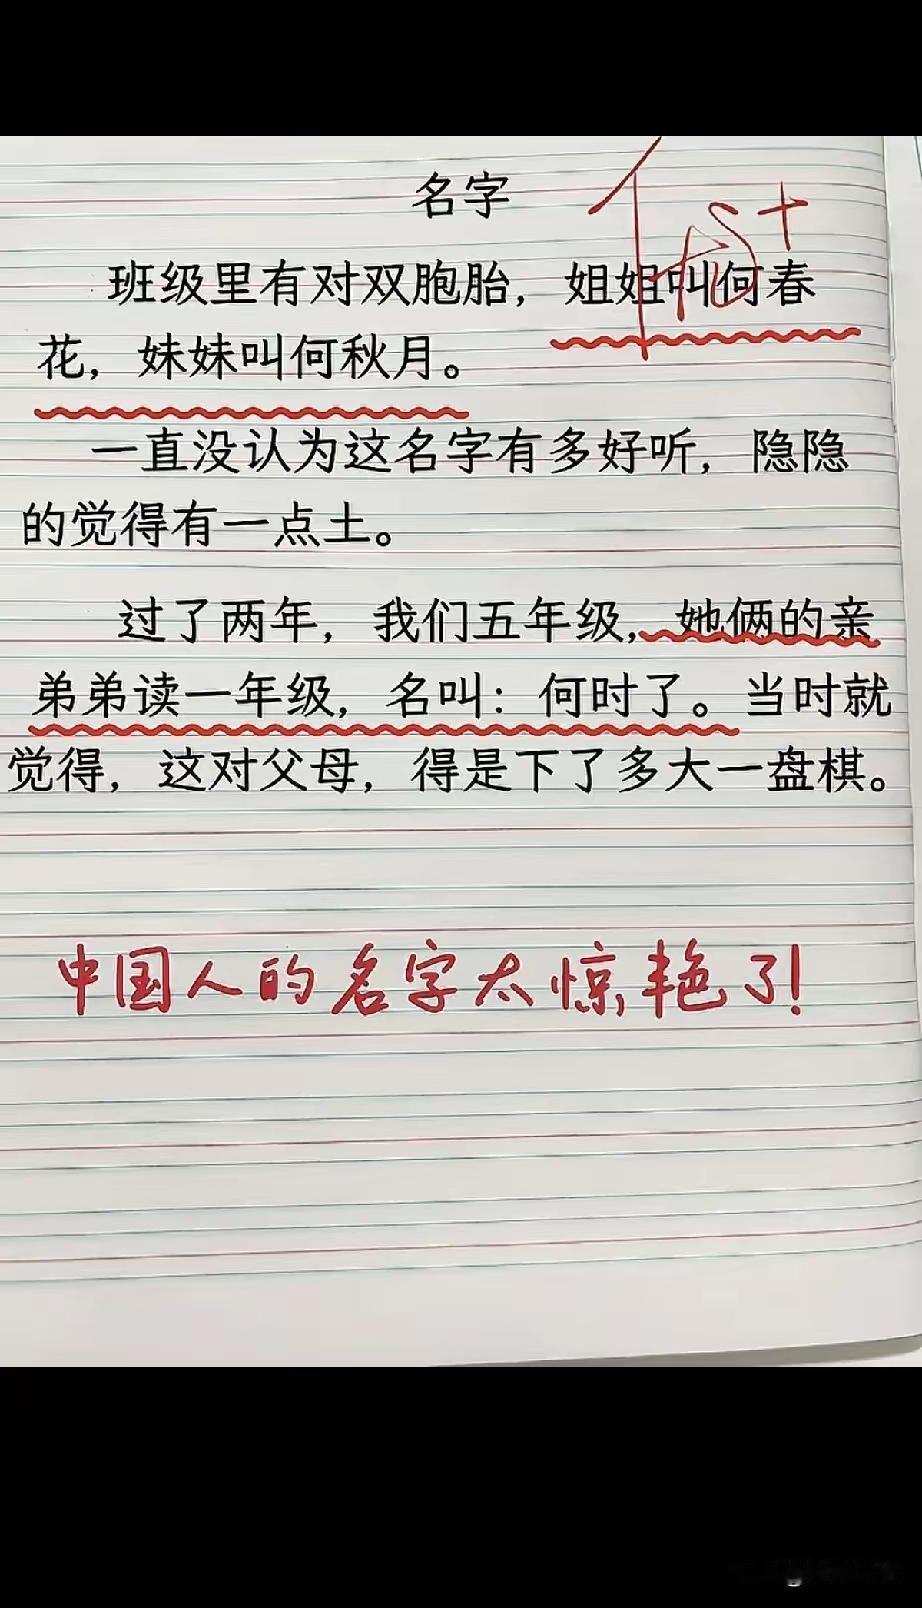 名字
班级里有对双胞胎，姐姐叫何春
花，妹妹叫何秋月。
一直没认为这名字有多好听，隐隐
的觉得有一点土。
过了两年，我们五年级，她俩的亲
弟弟读一年级，名叫：何时了。当时就
觉得，这对父母，得是下了多大一盘棋。
中国人的名字太惊艳了！